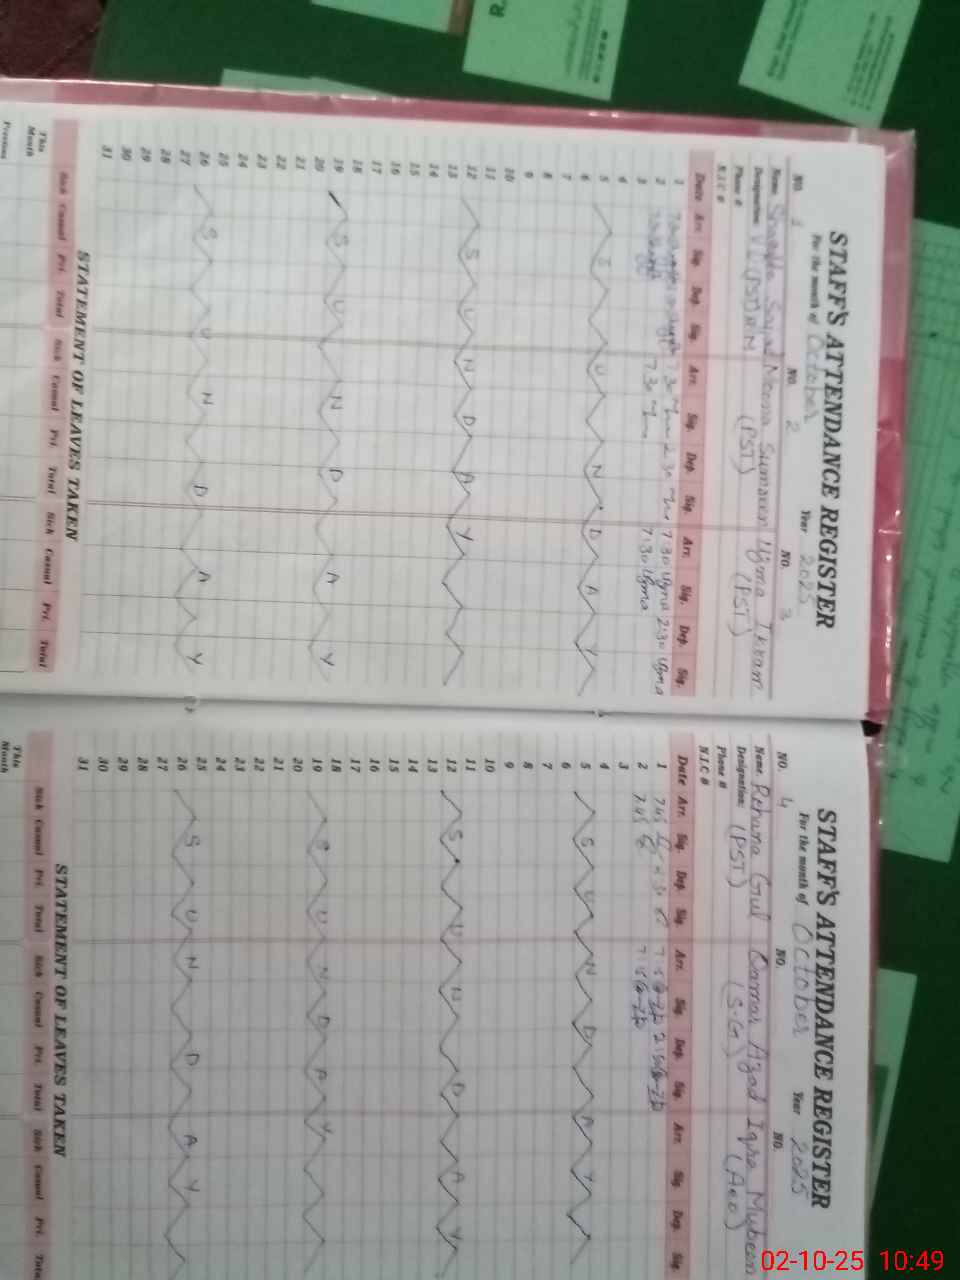 STAFF'S ATTENDANCE REGISTER
For the month of October Year 2025
NO. 1 NO. 2 NO. 3
Name. Sajid Neena Sumaeen Uzma Ikram
Designation: (PST) (PST)
Phone #
N.I.C #
Date Arr. Sig. Dep. Sig. Arr. Sig. Dep. Sig. Arr. Sig. Dep. Sig.
1 7:30 2:30 7:30 Uzma 2:30 Uzma
2 7:30 7:30 Uzma
3
4
5 S U N D A Y
6
7
8
9
10
11
12 S U N D A Y
13
14
15
16
17
18
19 S U N D A Y
20
21
22
23
24
25
26 S U N D A Y
27
28
29
30
31
STATEMENT OF LEAVES TAKEN
Sick Casual Pri. Total Sick Casual Pri. Total Sick Casual Pri. Total
This Month
Previous
STAFF'S ATTENDANCE REGISTER
For the month of October Year 2025
NO. 4 NO. NO.
Name. Rehana Gul Qamar Azad Iqra Mubeen
Designation: (PST) (S.G)
Phone #
N.I.C #
Date Arr. Sig. Dep. Sig. Arr. Sig. Dep. Sig. Arr. Sig. Dep. Sig.
1 7:45 7:15
2 7:45 7:15
3
4
5 S U N D A Y
6
7
8
9
10
11
12 S U N D A Y
13
14
15
16
17
18
19 S U N D A Y
20
21
22
23
24
25
26 S U N D A Y
27
28
29
30
31
STATEMENT OF LEAVES TAKEN
Sick Casual Pri. Total Sick Casual Pri. Total Sick Casual Pri. Total
This Month
02-10-25 10:49